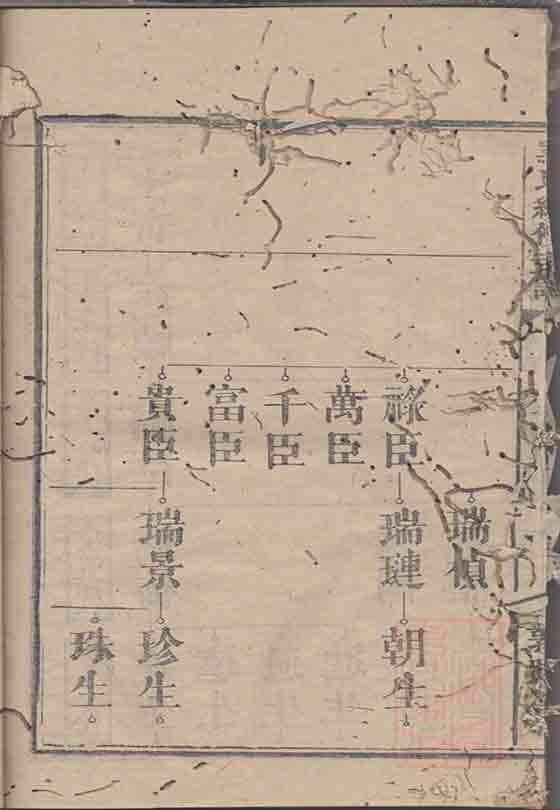 瑞楨
祿臣
瑞璉
朝生
萬臣
千臣
富臣
貴臣
瑞景
珍生
珠生